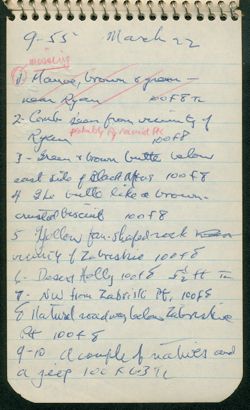 9-55 March 22
missing
1- Mauve, brown & green -
near Ryan 100 F8 Tr
2- Comb seen from vicinity of
Ryan probably Pyramid Pk 100 f8
3- Green & brown butte below
east side of Black Mtns 100 f8
4 The butte like a brown-
crusted biscuit 100 f8
5 Yellow fan-shaped rock
vicinity of Zabriskie 100 f8
6- Desert Holly 100 f8 Tr
7- NW from Zabriskie Pt, 100 f8
8 Natural roadway below Zabriskie
Pt 100 f8
9-10 A couple of natives and
a jeep 100 F 6.3 Tr